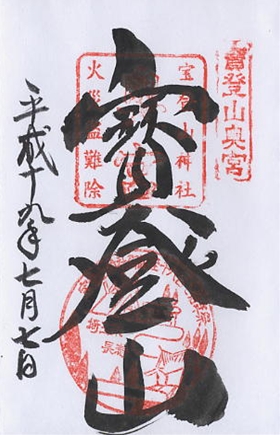 寶登山奥宮
宝登山神社
火災盗難除
寶登山
平成十九年七月七日